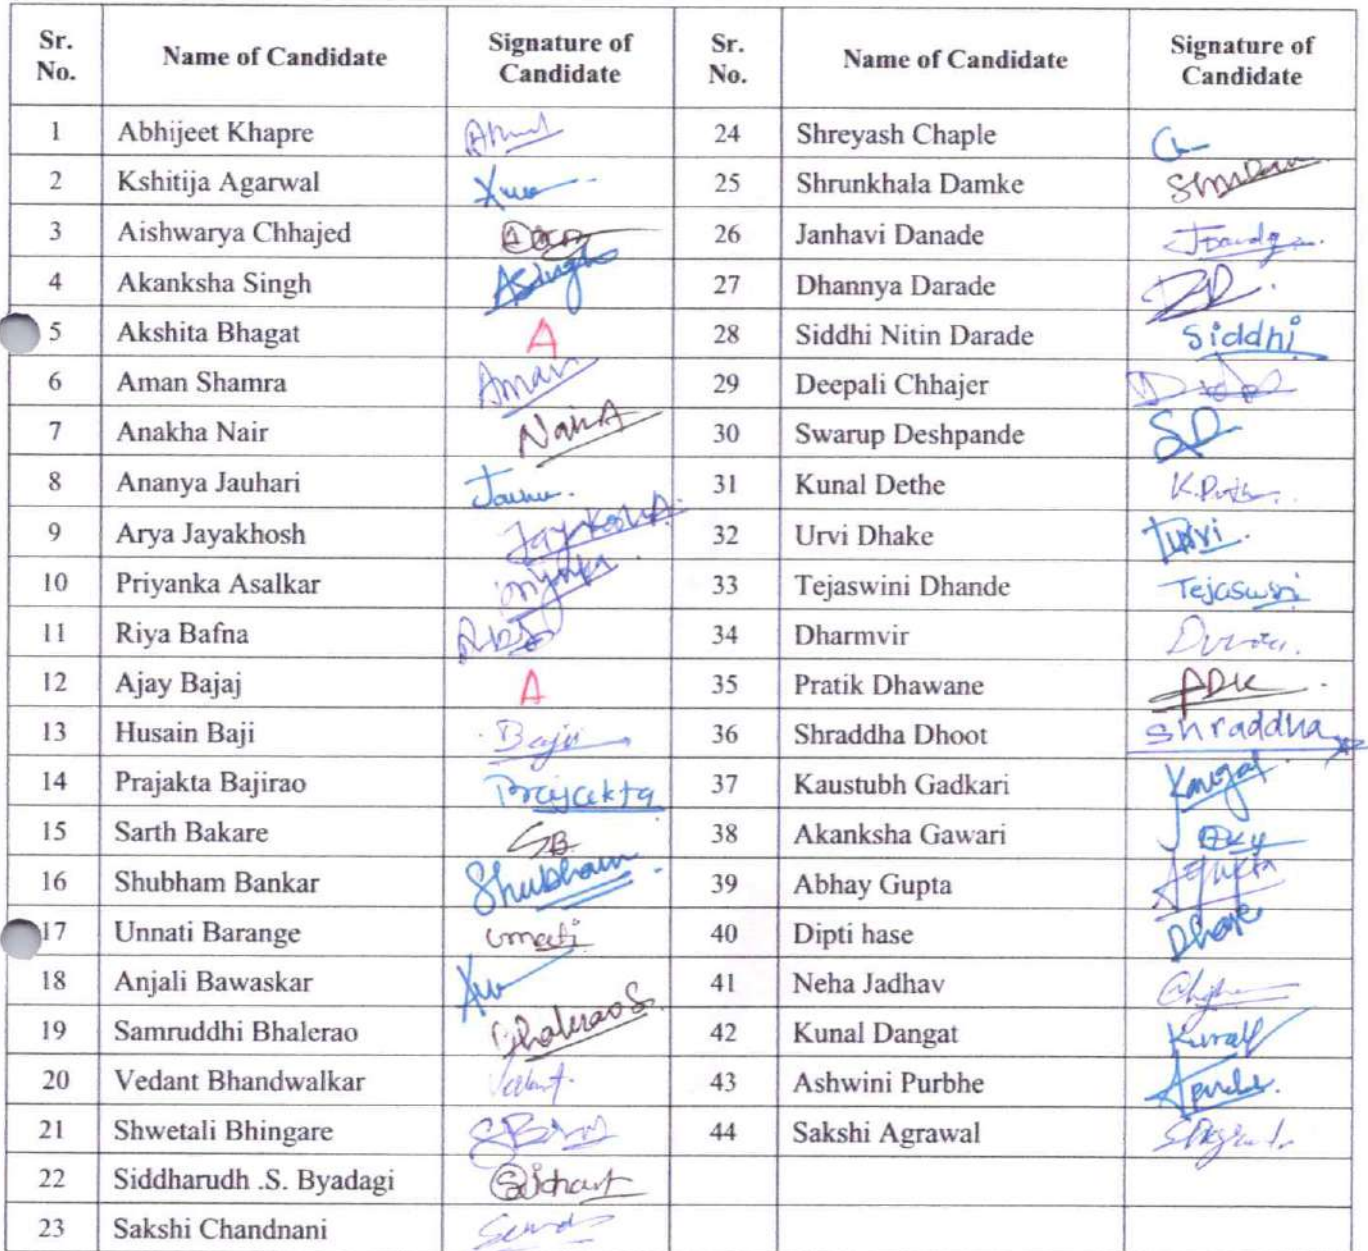 Sr. No. Name of Candidate Signature of Candidate Sr. No. Name of Candidate Signature of Candidate
1 Abhijeet Khapre 24 Shreyash Chaple
2 Kshitija Agarwal 25 Shrunkhala Damke
3 Aishwarya Chhajed 26 Janhavi Danade
4 Akanksha Singh ASingh 27 Dhannya Darade
5 Akshita Bhagat A 28 Siddhi Nitin Darade Siddhi
6 Aman Shamra Aman 29 Deepali Chhajer
7 Anakha Nair NairA 30 Swarup Deshpande SD
8 Ananya Jauhari 31 Kunal Dethe
9 Arya Jayakhosh 32 Urvi Dhake Urvi.
10 Priyanka Asalkar 33 Tejaswini Dhande Tejaswini
11 Riya Bafna 34 Dharmvir
12 Ajay Bajaj A 35 Pratik Dhawane
13 Husain Baji Baji 36 Shraddha Dhoot Shraddha
14 Prajakta Bajirao Prajakta 37 Kaustubh Gadkari
15 Sarth Bakare SB 38 Akanksha Gawari
16 Shubham Bankar Shubham 39 Abhay Gupta
17 Unnati Barange 40 Dipti hase Dhase
18 Anjali Bawaskar 41 Neha Jadhav
19 Samruddhi Bhalerao Bhalerao S. 42 Kunal Dangat Kunal
20 Vedant Bhandwalkar Vedant. 43 Ashwini Purbhe
21 Shwetali Bhingare 44 Sakshi Agrawal
22 Siddharudh .S. Byadagi
23 Sakshi Chandnani